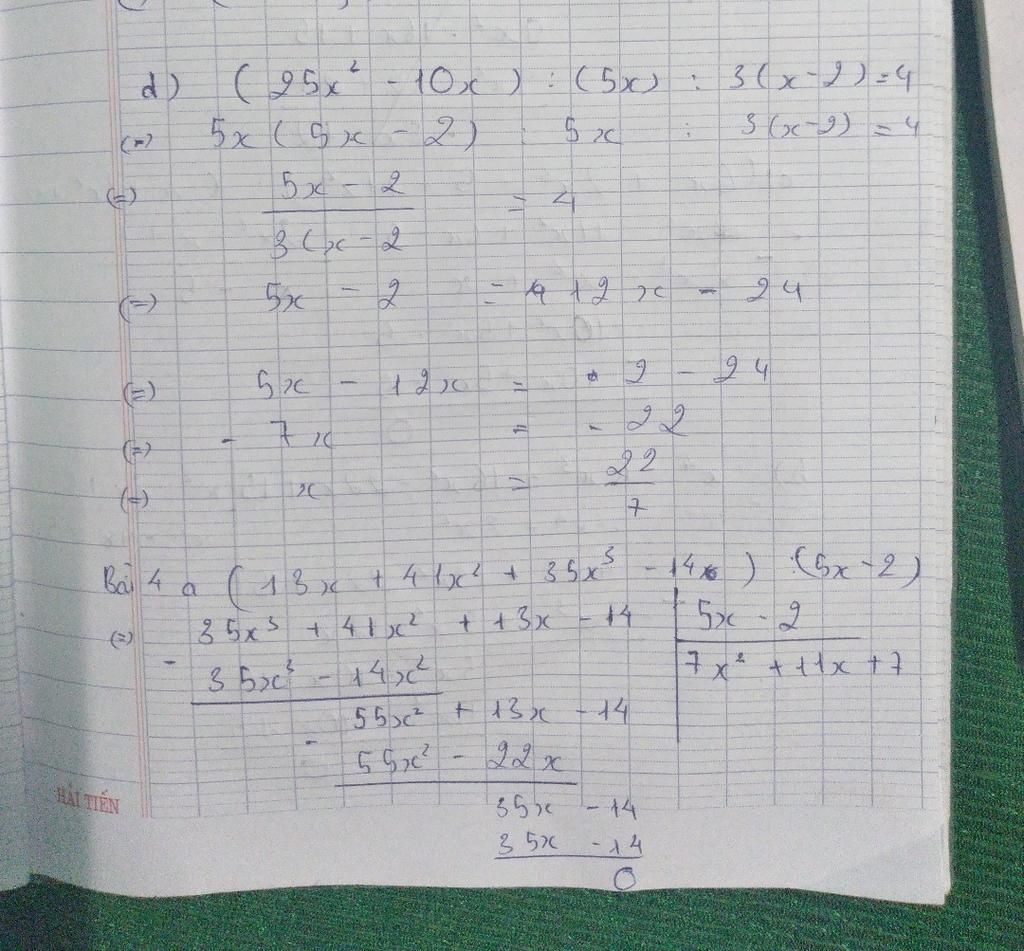 d) (25x² - 10x) : (5x) : 3(x-2) = 4
(=) 5x(5x - 2) : 5x : 3(x-2) = 4
(=) 5x - 2 / 3(x-2 = 4
(=) 5x - 2 = 12x - 24
(=) 5x - 12x = 2 - 24
(=) - 7x = - 22
(=) x = 22/7
Bài 4 a (13x + 41x² + 35x³ - 14) : (5x-2)
(=) 35x³ + 41x² + 13x - 14 | 5x - 2
- 35x³ - 14x² | 7x² + 11x + 7
55x² + 13x - 14
- 55x² - 22x
HẢI TIẾN
35x - 14
35x - 14
0